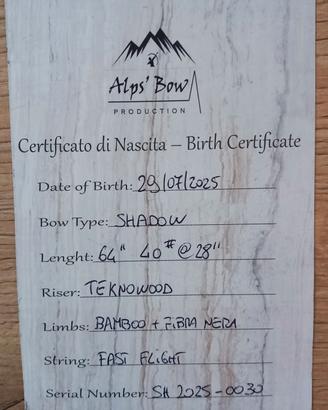 Alps' Bow
PRODUCTION
Certificato di Nascita – Birth Certificate
Date of Birth: 29/07/2025
Bow Type: SHADOW
Lenght: 64" 40# @ 28"
Riser: TEKNOWOOD
Limbs: BAMBOO + FIBRA NERA
String: FAST FLIGHT
Serial Number: SH 2025-0030